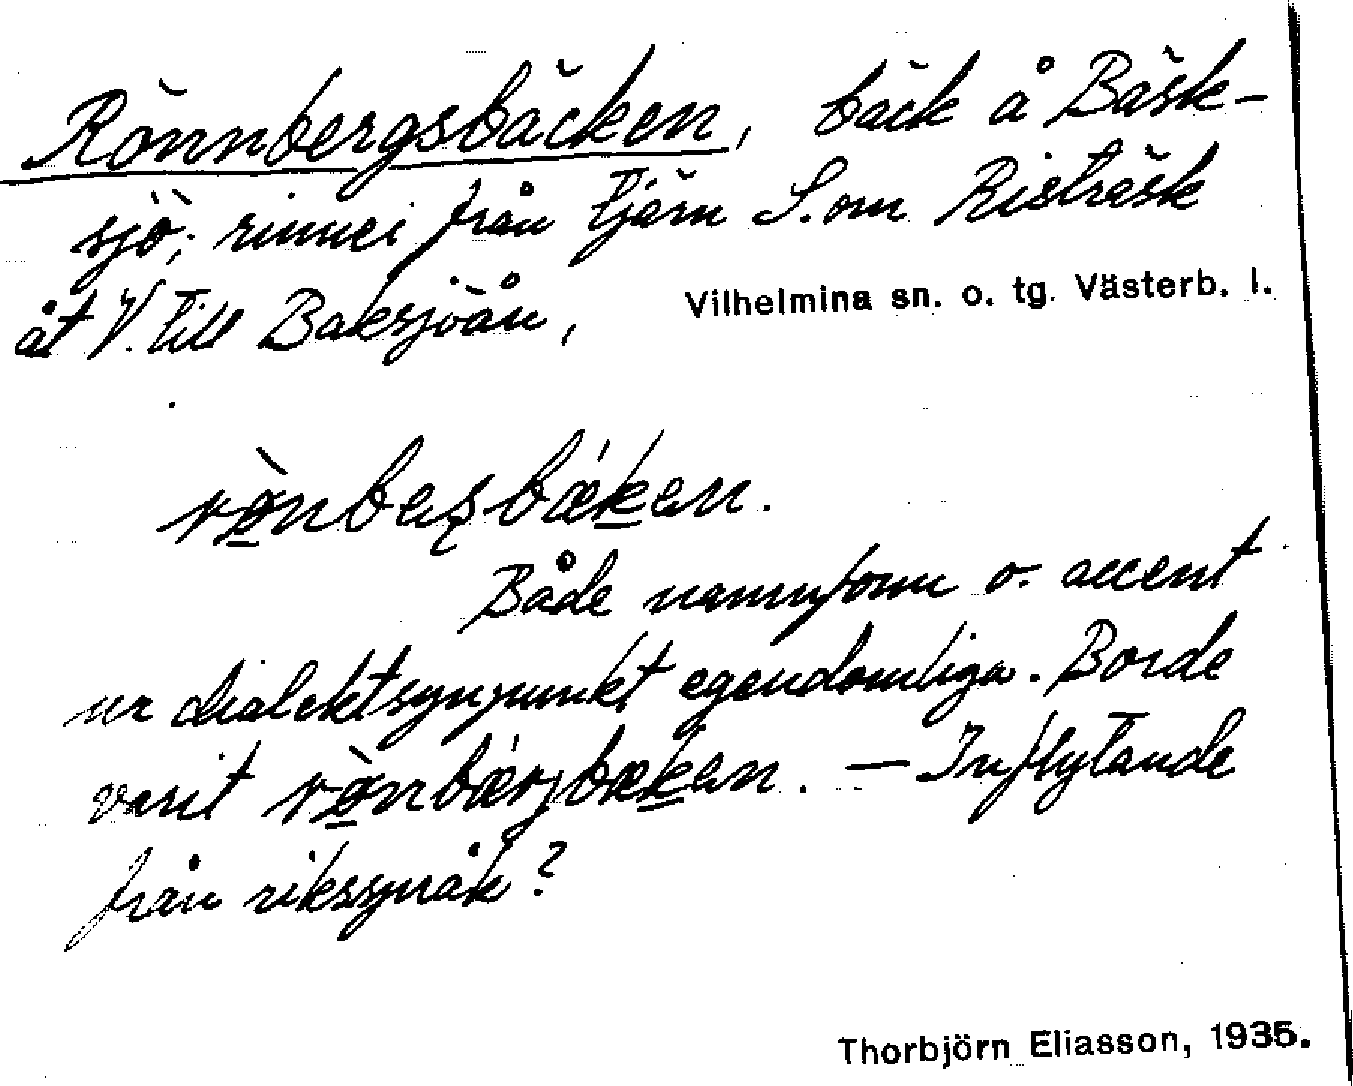 Rönnbergsbäcken, bäck å Bäsk-
sjö; rinner från tjärn S. om Risträsk
åt V. till Baksjöån,
Vilhelmina sn. o. tg. Västerb. l.
Både namnform o. accent
ur dialektsynpunkt egendomliga. Borde
varit rö̀nbærjbæken. — Inflytande
från riksspråk?
Thorbjörn Eliasson, 1935.